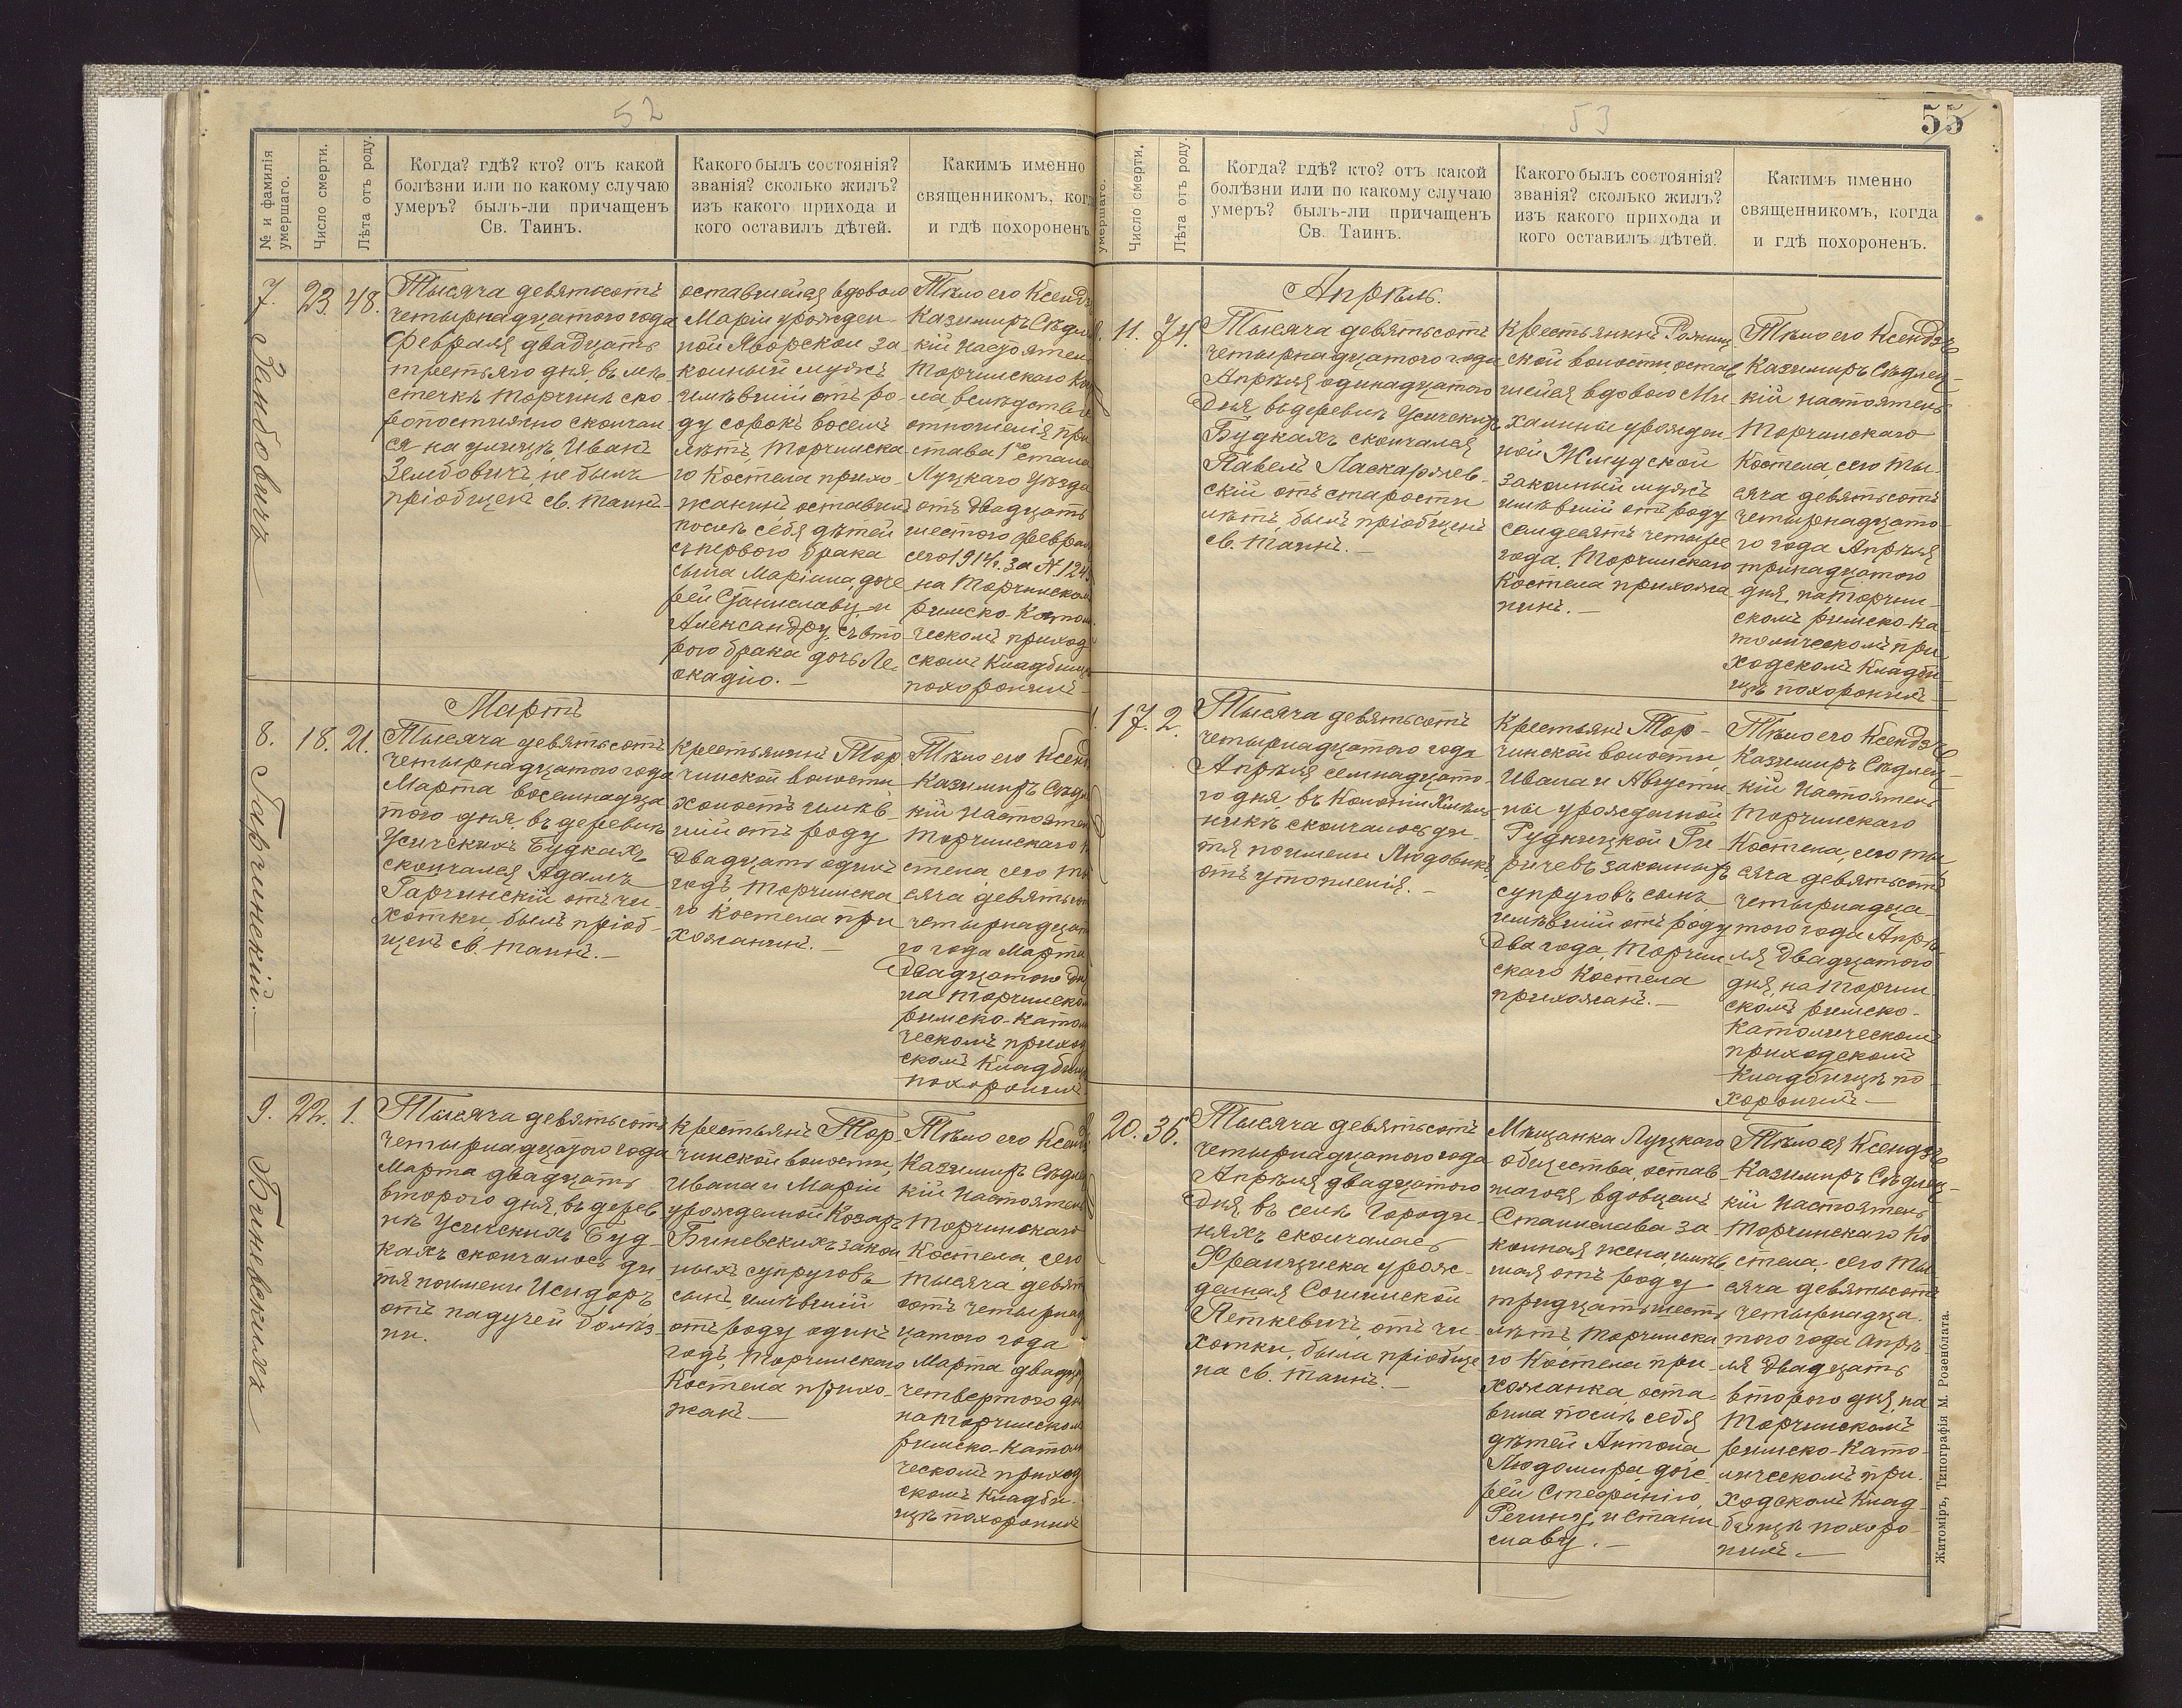 52
№ и фамилія умершаго.
Число смерти.
Лѣта отъ роду.
Когда? гдѣ? кто? отъ какой
болѣзни или по какому случаю
умеръ? былъ-ли причащенъ
Св. Таинъ.
Какого былъ состоянія?
званія? сколько жилъ?
изъ какого прихода и
кого оставилъ дѣтей.
Каким именно
священникомъ, ког
и гдѣ похороненъ
7. Зембовичъ
23.
48.
Тысяча девятьсотъ
четырнадцатого года
Февраля двадцать
третьяго дня, въ мѣ-
стечкѣ Торчинѣ ско-
ропостижно скончал
ся на улицѣ, Иванъ
Зембовичъ, не былъ
пріобщенъ св. таинъ.
оставшейся вдовою
Маріи урожден
ной Яворской за
конный мужъ
имѣвшій отъ ро-
ду сорокъ восемъ
лѣтъ, Торчинска
го Костела прихо-
жанинъ оставилъ
послѣ себя дѣтей
съ первого брака
сына Маріана, доче
рей Станиславу и
Александру, съ вто
рого брака дочь Ле-
окадію. —
Тѣло его Ксендз
Казимиръ Сѣдле
кій Настоятел
Торчинскаго Ко
ла, вслѣдствіе
отношенія при
става 1го стана
Луцкаго Уѣзда
отъ двадцать
шестого февра
сего 1914 г. за № 124
на Торчинском
римско-Катол
ческомъ приход
скомъ Кладбищ
похоронилъ
Мартъ
8. Гарчинскій. —
18.
21.
Тысяча девятьсотъ
четырнадцатого года
Марта восемнадца
того дня, въ деревнѣ
Усичскихъ Будкахъ
скончался Адамъ
Гарчинскій отъ ча-
хотки, былъ пріоб-
щенъ св. таинъ. —
Крестьянинъ Тор
чинской волости
холостъ имѣв-
шій отъ роду
двадцать одинъ
годъ, Торчинска
го Костела при
хожанинъ. —
Тѣло его Ксенд
Казимиръ Сѣдл
кій Настоятел
Торчинскаго К
стела сего ты
сяча девятьсот
четырнадцат
го года Марта
двадцатого дн
на Торчинском
римско-Катол
ческомъ приход
скомъ Кладбищ
похоронилъ
9. Биневскихъ
22.
1.
Тысяча девятьсотъ
четырнадцатого года
Марта двадцать
второго дня, въ дерев
нѣ Усичскихъ Буд-
кахъ скончалось ди
тя по имени Исидоръ
отъ падучей болѣз-
ни.
Крестьянъ Тор-
чинской волости,
Ивана и Маріи
урожденной Козаръ
Биневскихъ закон
ныхъ супруговъ
сынъ, имѣвшій
отъ роду одинъ
годъ, Торчинскаго
Костела прихо-
жанъ —
Тѣло его Ксенд
Казимиръ Сѣдле
кій Настоятель
Торчинскаго
Костела, сего
тысяча девят
сотъ четырнад
цатого года
Марта двадца
четвертого дн
на Торчинском
римско-Катол
ческомъ приход
скомъ Кладби-
щѣ похоронилъ
53
55
умершаго.
Число смерти.
Лѣта отъ роду.
Когда? гдѣ? кто? отъ какой
болѣзни или по какому случаю
умеръ? былъ-ли причащенъ
Св. Таинъ.
Какого былъ состоянія?
званія? сколько жилъ?
изъ какого прихода и
кого оставилъ дѣтей.
Какимъ именно
священникомъ, когда
и гдѣ похороненъ.
Апрѣль.
11.
74.
Тысяча девятьсотъ
четырнадцатого года
Апрѣля одинадцатого
дня, въ деревнѣ Усичскихъ
Будкахъ скончался
Павелъ Паскаржев-
скій отъ старости
лѣтъ, былъ пріобщенъ
св. таинъ. —
Крестьянинъ Рожищ
ской волости остав
шейся вдовою Ми-
халины урожден
ной Жмудской
законный мужъ
имѣвшій отъ роду
семдесятъ четыре
года, Торчинскаго
Костела прихожа
нинъ. —
Тѣло его Ксендзъ
Казимиръ Сѣдлец-
кій настоятель
Торчинскаго
Костела, сего ты-
сяча девятьсотъ
четырнадцато-
го года Апрѣля
тринадцатого
дня, на Торчин-
скомъ римско-ка-
толическомъ при
ходскомъ Кладби
щѣ похоронилъ
17.
2.
Тысяча девятьсотъ
четырнадцатого года
Апрѣля семнадцато-
го дня, въ Колоніи
никѣ скончалось ди-
тя по имени Людовикъ
отъ утопленія. —
Крестьянъ Тор-
чинской волости,
Ивана и Августи
ны урожденной
Рудницкой
законныхъ
супруговъ сынъ
имѣвшій отъ роду
два года, Торчин
скаго Костела
прихожанъ. —
Тѣло его Ксендзъ
Казимиръ Сѣдлец-
кій Настоятель
Торчинскаго
Костела, сего ты
сяча девятьсотъ
четырнадца-
того года Апрѣ
ля двадцатого
дня, на Торчин
скомъ римско-
Католическомъ
приходскомъ
Кладбищѣ по
хоронилъ —
20.
36.
Тысяча девятьсотъ
четырнадцатого года
Апрѣля двадцатого
дня, въ селѣ Городи-
няхъ скончалась
Францишка урож-
денная Сошинской
Петкевичъ, отъ ча-
хотки, была пріобще
на св. таинъ. —
Мѣщанка Луцкаго
общества, остав-
шагося вдовцемъ
Станислава за-
конная жена, имѣв
шая отъ роду
тридцать шесть
лѣтъ, Торчинска
го Костела при-
хожанка, оста-
вила послѣ себя
дѣтей Антона,
Людомира, доче
рей Стефанію,
Регину, и Стани
славу. —
Тѣло ея Ксендзъ
Казимиръ Сѣдлец-
кій Настоятель
Торчинскаго Ко
стела, сего ты
сяча девятьсотъ
четырнадца-
того года Апрѣ-
ля двадцать
второго дня, на
Торчинскомъ
римско-Като-
лическомъ при-
ходскомъ Клад-
бищѣ похоро-
нилъ. —
Житоміръ, Типографія М. Розенблата.